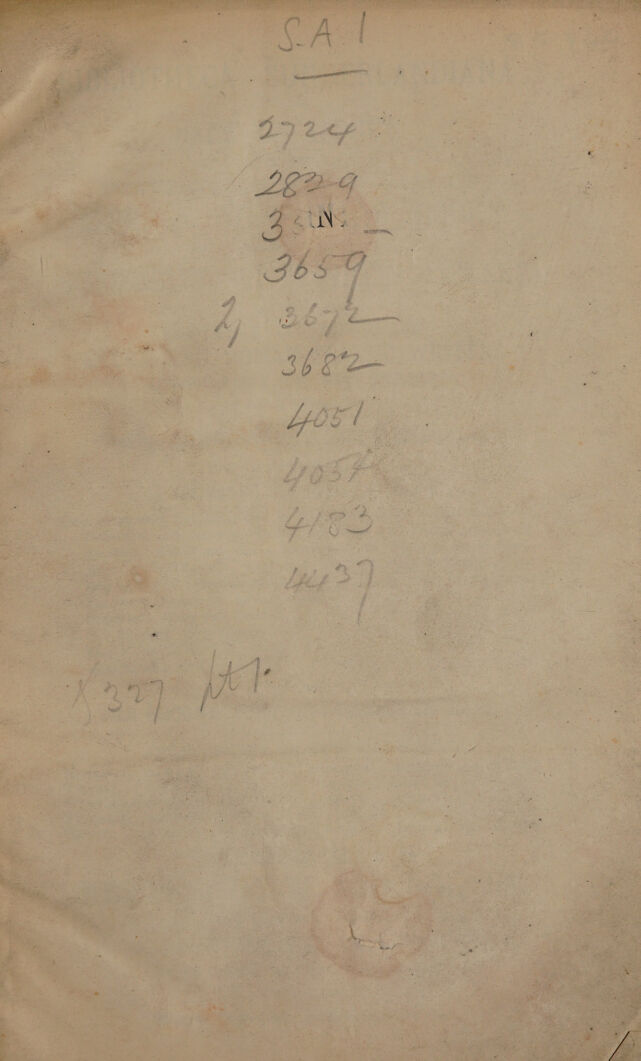 S.A 1
2724
2829
3659
2, 3672
3682
4051
4054
4183
4437
327 pt 1.